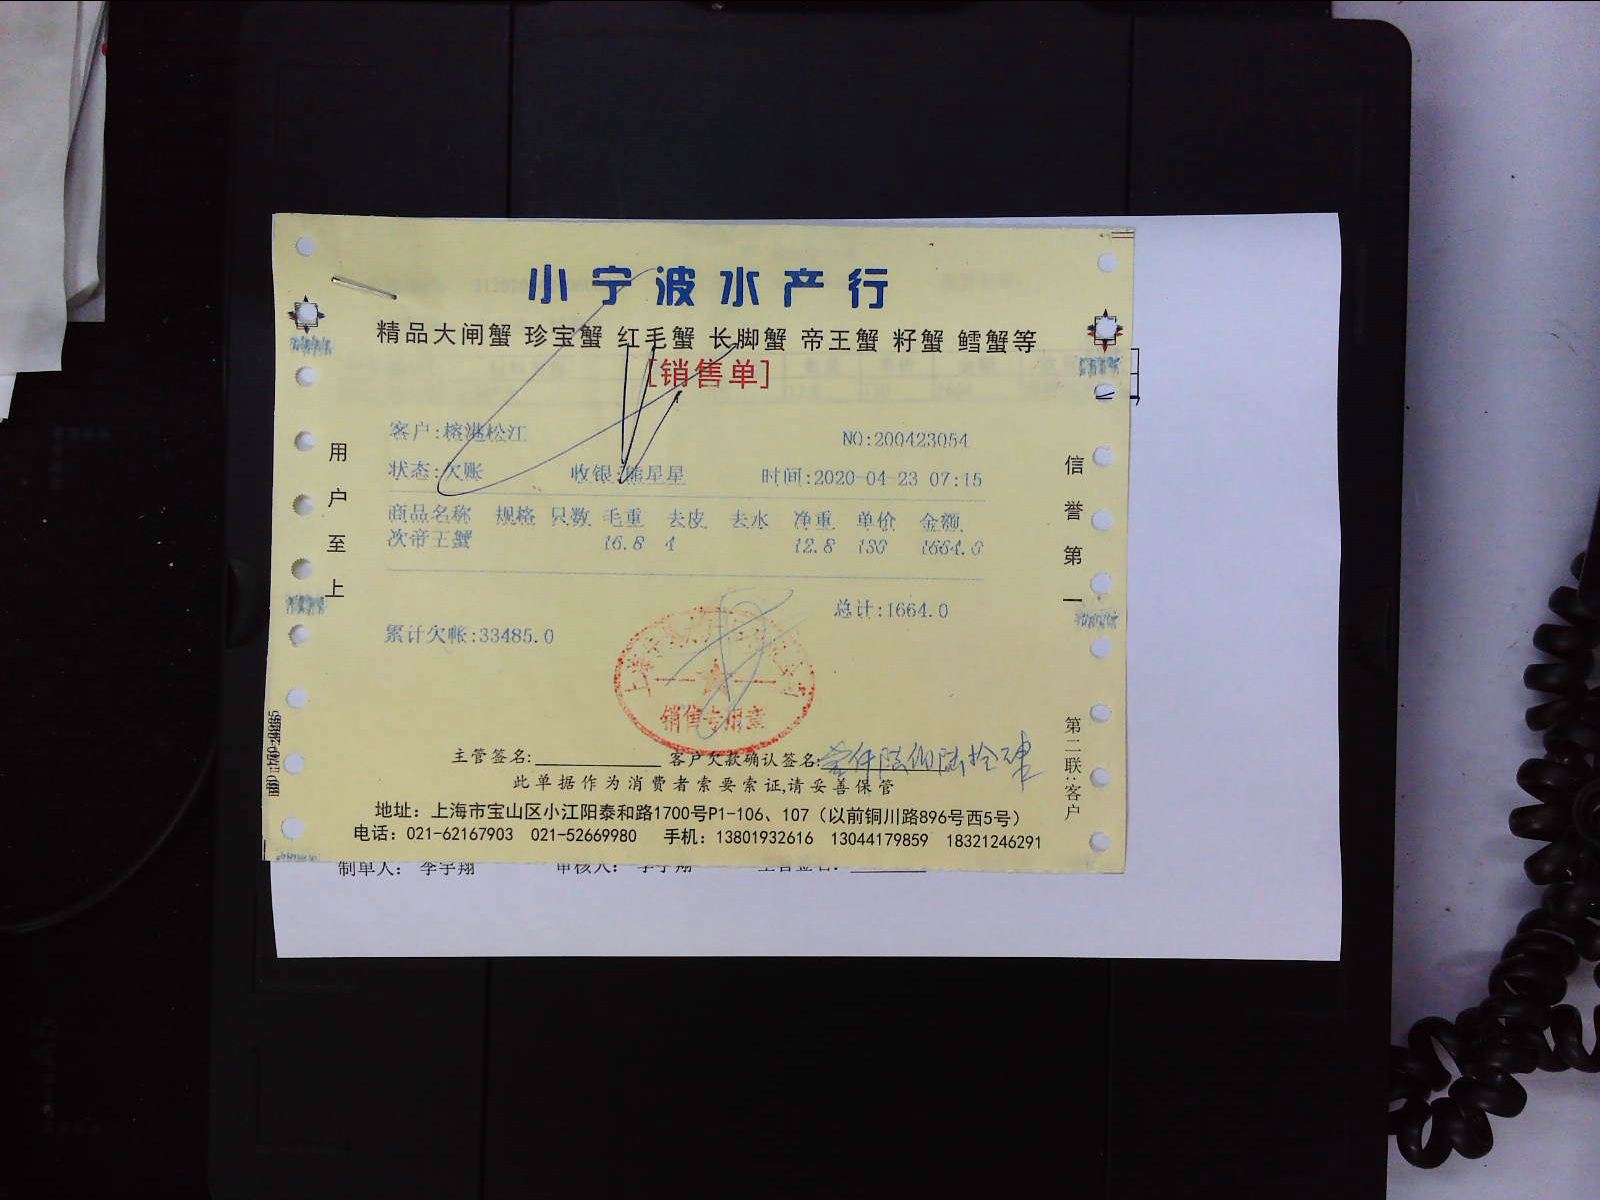 小宁波水产行
精品大闸蟹 珍宝蟹 红毛蟹 长脚蟹 帝王蟹 籽蟹 鳕蟹等
[销售单]
客户:榕港松江 NO:200423054
状态:欠账 收银:熊星星 时间:2020-04-23 07:15
商品名称 规格 只数 毛重 去皮 去水 净重 单价 金额
次帝王蟹 16.8 4 12.8 130 1664.0
总计:1664.0
累计欠帐:33485.0
用户至上
信誉第一
销售专用章
第二联:客户
主管签名: 客户欠款确认签名:壹仟陆佰陆拾肆
此单据作为消费者索要索证,请妥善保管
地址：上海市宝山区小江阳泰和路1700号P1-106、107（以前铜川路896号西5号）
电话：021-62167903 021-52669980 手机：13801932616 13044179859 18321246291
制单人： 李宇翔 审核人： 李宇翔 主管签名：